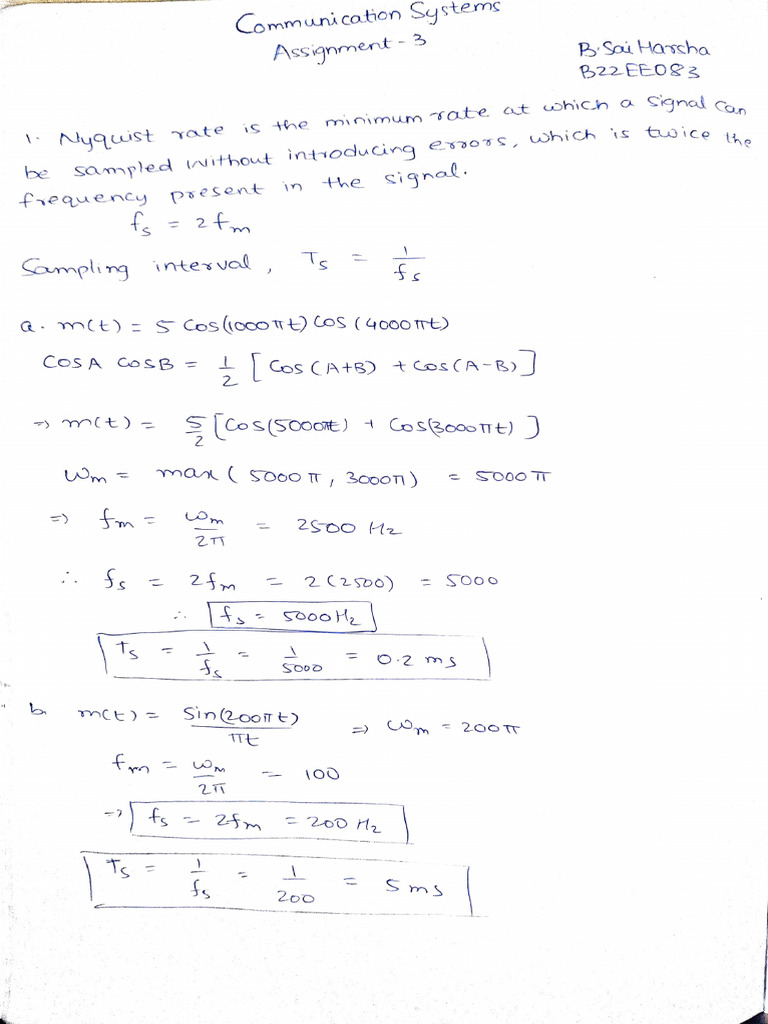 Communication Systems
Assignment - 3
B. Sai Harsha
B22EE083
1. Nyquist rate is the minimum rate at which a signal can
be sampled without introducing errors, which is twice the
frequency present in the signal.
fs = 2fm
Sampling interval, Ts = 1/fs
a. m(t) = 5 Cos(1000πt) Cos (4000πt)
COSA COSB = 1/2 [Cos(A+B) + Cos(A-B)]
=> m(t) = 5/2 [Cos(5000πt) + Cos(3000πt)]
ωm = max (5000π, 3000π) = 5000π
=> fm = ωm/2π = 2500 Hz
∴ fs = 2fm = 2(2500) = 5000
∴ fs = 5000Hz
Ts = 1/fs = 1/5000 = 0.2 ms
b. m(t) = Sin(200πt)/πt => ωm = 200π
fm = ωm/2π = 100
=> fs = 2fm = 200 Hz
Ts = 1/fs = 1/200 = 5 ms